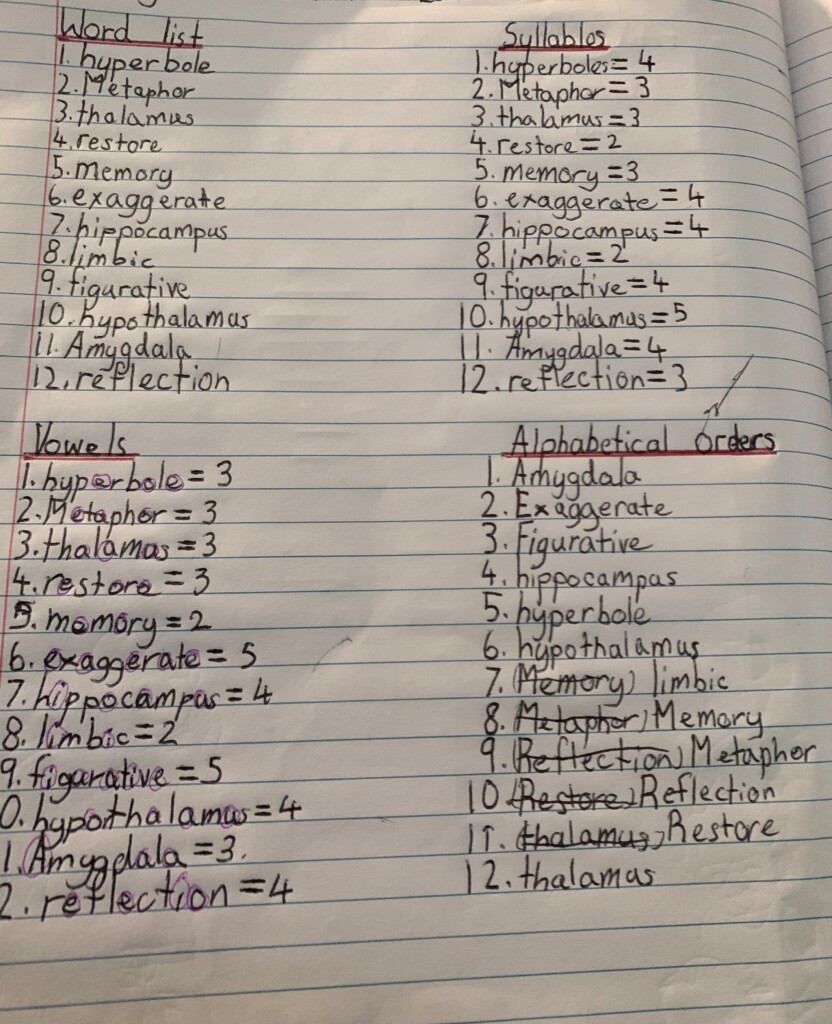 Word list
1. hyperbole
2. Metaphor
3. thalamus
4. restore
5. memory
6. exaggerate
7. hippocampus
8. limbic
9. figurative
10. hypothalamus
11. Amygdala
12. reflection
Syllables
1. hyperboles = 4
2. Metaphor = 3
3. thalamus = 3
4. restore = 2
5. memory = 3
6. exaggerate = 4
7. hippocampus = 4
8. limbic = 2
9. figurative = 4
10. hypothalamus = 5
11. Amygdala = 4
12. reflection = 3
Vowels
1. hyperbole = 3
2. Metaphor = 3
3. thalamas = 3
4. restore = 3
5. memory = 2
6. exaggerate = 5
7. hippocampus = 4
8. limbic = 2
9. figurative = 5
0. hypothalamus = 4
1. Amygdala = 3.
2. reflection = 4
Alphabetical orders
1. Amygdala
2. Exaggerate
3. Figurative
4. hippocampas
5. hyperbole
6. hypothalamus
7. (Memory) limbic
8. (Metaphor) Memory
9. (Reflection) Metaphor
10 (Restore) Reflection
11. (thalamus) Restore
12. thalamas